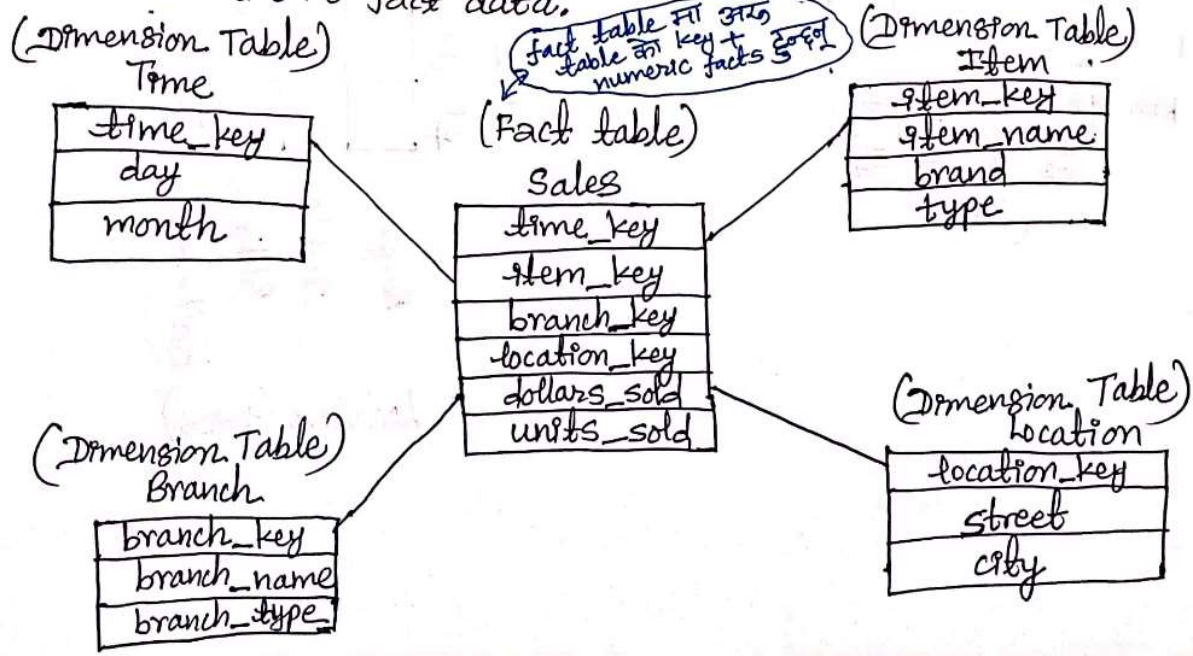 fact data.
(Dimension Table)
Time
time_key
day
month
fact table मा अरु
table को key +
numeric facts हुन्छन्
(Fact table)
Sales
time_key
item_key
branch_key
location_key
dollars_sold
units_sold
(Dimension Table)
Item
item_key
item_name
brand
type
(Dimension Table)
Branch
branch_key
branch_name
branch_type
(Dimension Table)
Location
location_key
street
city